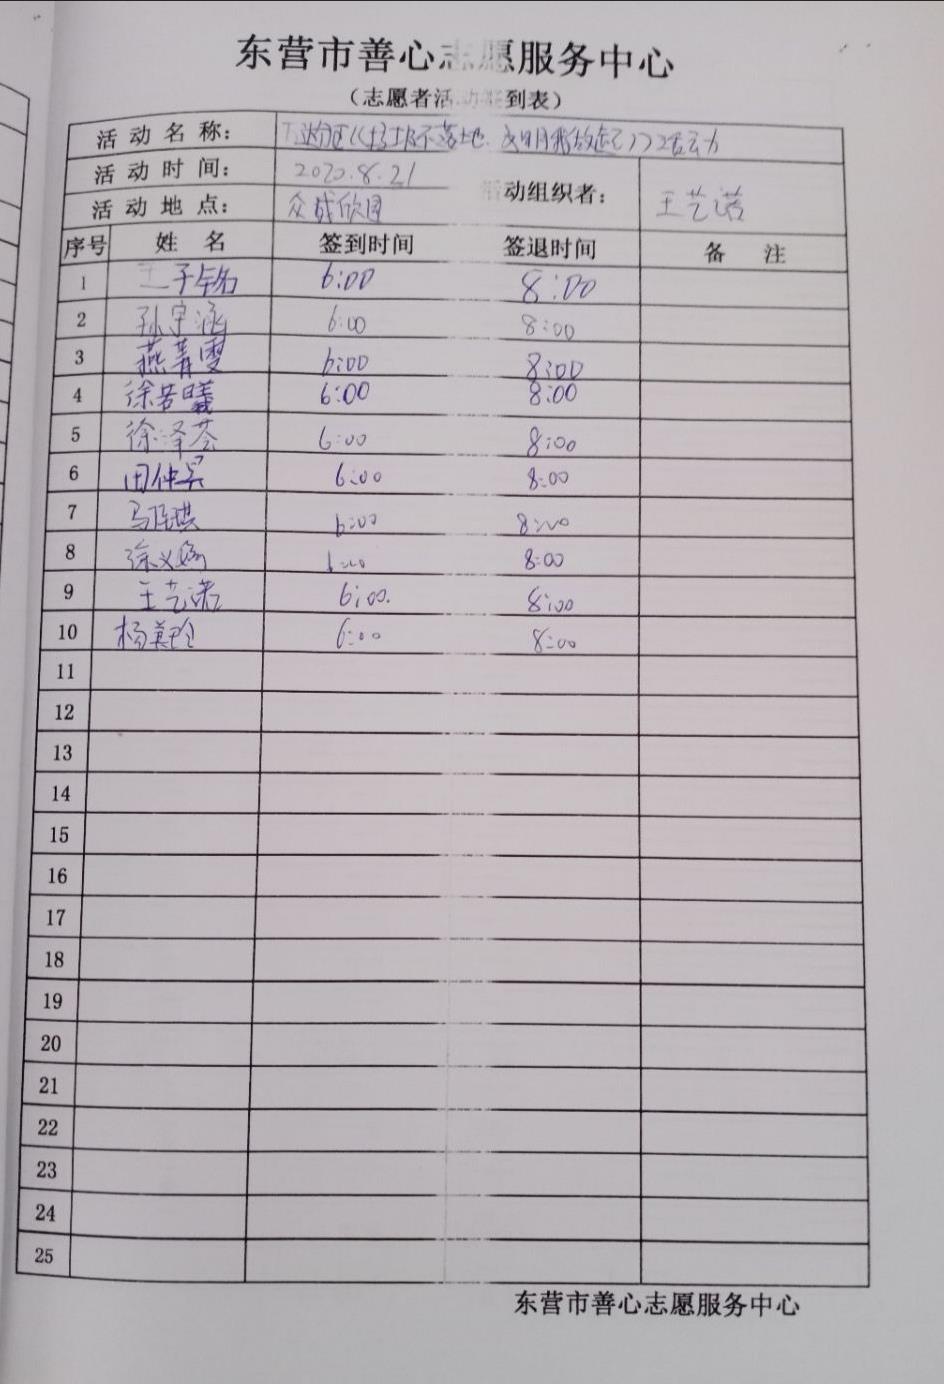 东营市善心志愿服务中心
（志愿者活动签到表）
活动名称： 垃圾不落地、文明我做起》活动
活动时间： 2020.8.21 活动组织者： 王艺诺
活动地点： 众成欣园
序号 姓名 签到时间 签退时间 备注
1 王子铭 6:00 8:00
2 孙宇涵 6:00 8:00
3 燕菁雯 6:00 8:00
4 徐若曦 6:00 8:00
5 徐泽荟 6:00 8:00
6 田仲昊 6:00 8:00
7 6:00 8:00
8 徐义 6:00 8:00
9 王艺诺 6:00. 8:00
10 杨美玲 6:00 8:00
11
12
13
14
15
16
17
18
19
20
21
22
23
24
25
东营市善心志愿服务中心